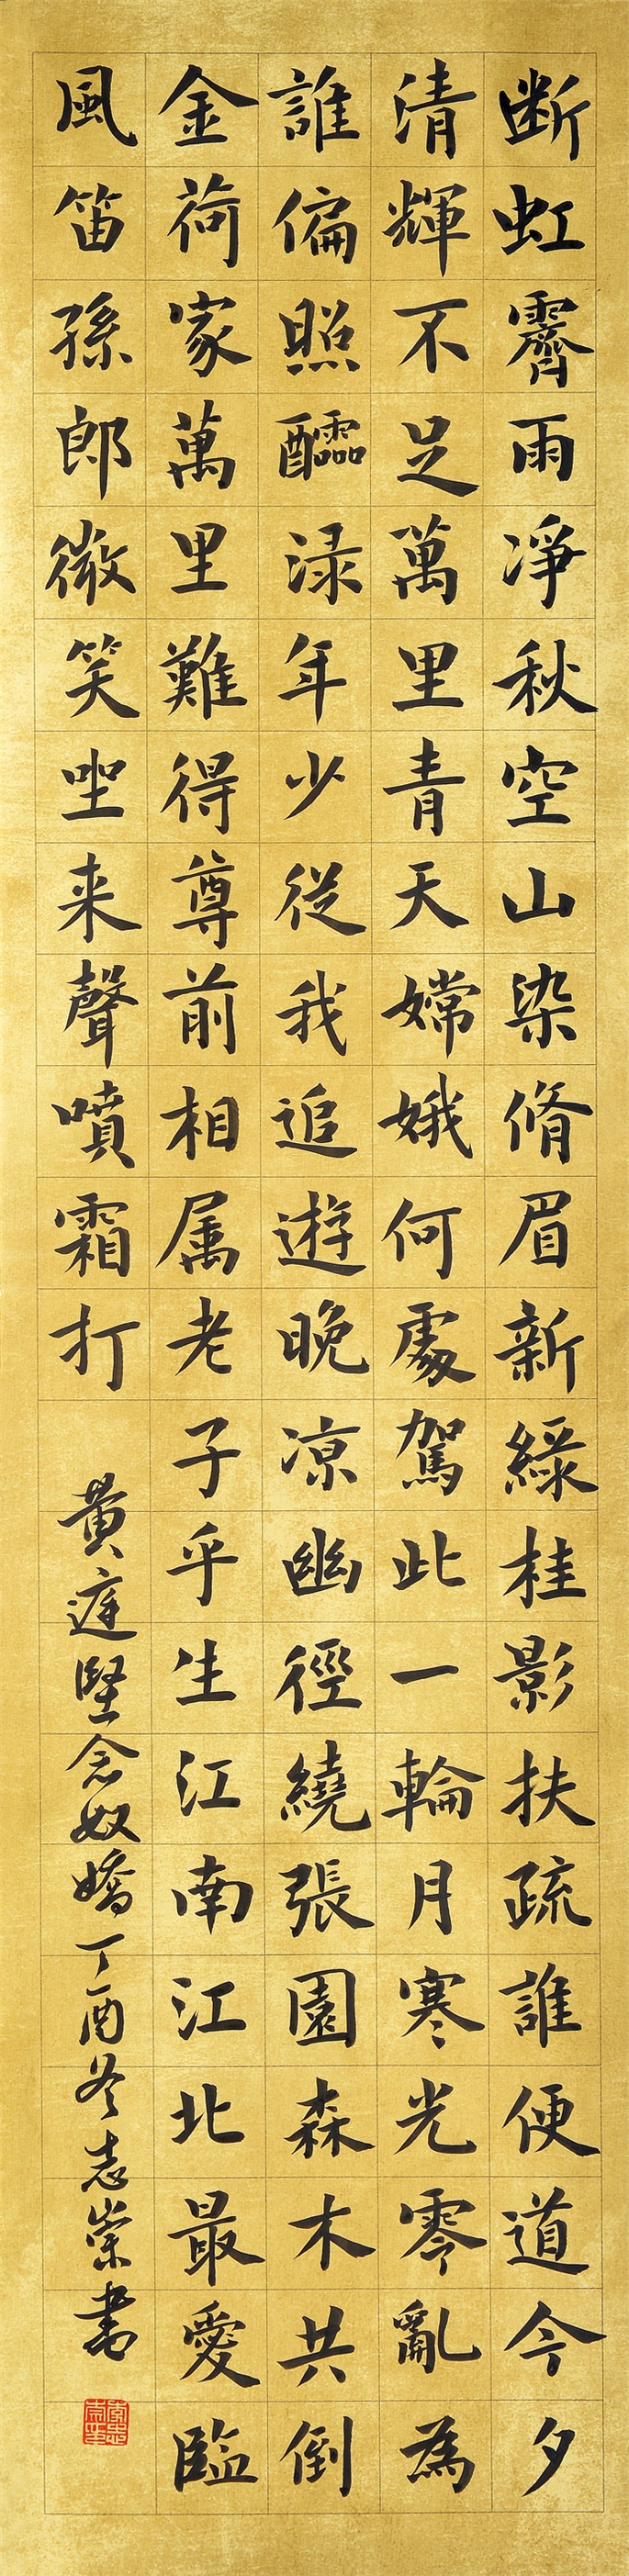 断虹霽雨凈秋空山染脩眉新綠桂影扶疏誰便道今夕
清輝不足萬里青天嫦娥何處駕此一輪月寒光零亂為
誰偏照醽渌年少從我追遊晚凉幽徑繞張園森木共倒
金荷家萬里難得尊前相属老子乎生江南江北最愛臨
風笛孫郎微笑坐来聲噴霜打
黄庭堅念奴嬌丁酉冬志崇書